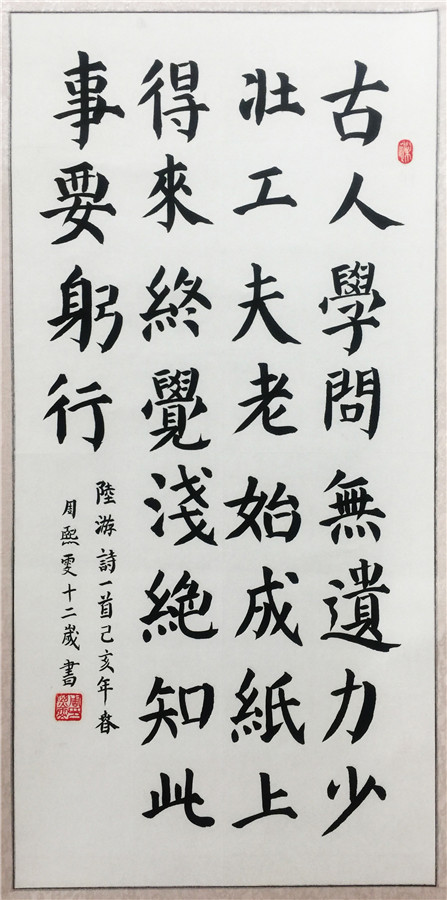 古人學問無遺力少
壯工夫老始成紙上
得來終覺淺絶知此
事要躬行
陸游詩一首己亥年春
周熙雯十二歲書